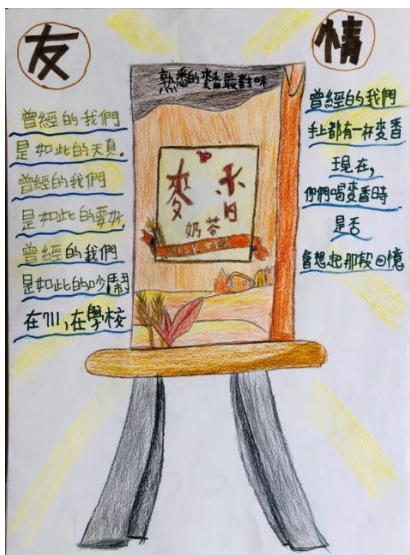 友情
熟悉的麥香最對味
麥香
奶茶
曾經的我們
是如此的天真,
曾經的我們
是如此的要好,
曾經的我們
是如此的吵鬧
在711,在學校
曾經的我們
手上都有一杯麥香
現在,
你們喝麥香時
是否
會想起那段回憶